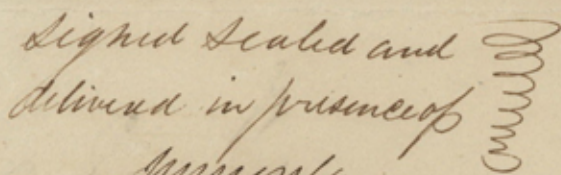 signed sealed and
delivered in presence of